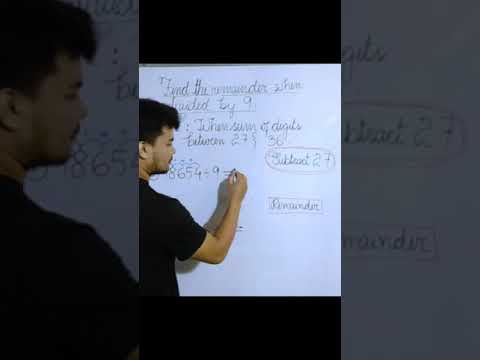 Find the remainder when
divided by 9.
: When sum of digits
between 27 & 36
Subtract 27
8654÷9=
Remainder